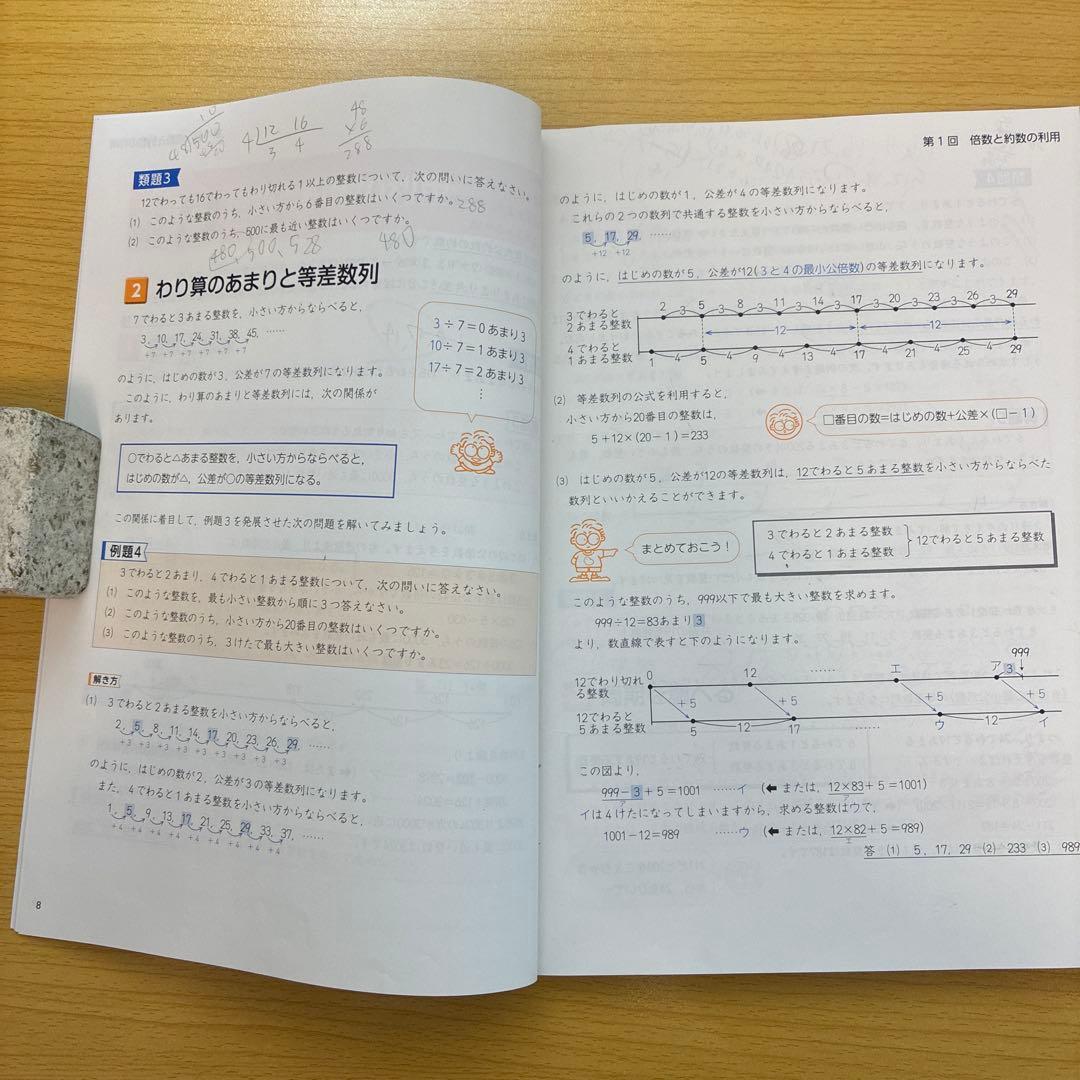 10
48)500
480
20
4)12 16
3 4
48
×6
288
類題3
12でわっても16でわってもわり切れる1以上の整数について,次の問いに答えなさい。
(1) このような整数のうち,小さい方から6番目の整数はいくつですか。288
(2) このような整数のうち,500に最も近い整数はいくつですか。
480, 500, 528 480
2 わり算のあまりと等差数列
7でわると3あまる整数を,小さい方からならべると,
3, 10, 17, 24, 31, 38, 45, ……
+7 +7 +7 +7 +7 +7
のように,はじめの数が3,公差が7の等差数列になります。
このように,わり算のあまりと等差数列には,次の関係が
あります。
3÷7=0あまり3
10÷7=1あまり3
17÷7=2あまり3
⋮
○でわると△あまる整数を,小さい方からならべると,
はじめの数が△,公差が○の等差数列になる。
この関係に着目して,例題3を発展させた次の問題を解いてみましょう。
例題4
3でわると2あまり,4でわると1あまる整数について,次の問いに答えなさい。
(1) このような整数を,最も小さい整数から順に3つ答えなさい。
(2) このような整数のうち,小さい方から20番目の整数はいくつですか。
(3) このような整数のうち,3けたで最も大きい整数はいくつですか。
解き方
(1) 3でわると2あまる整数を小さい方からならべると,
2, 5, 8, 11, 14, 17, 20, 23, 26, 29, ……
+3 +3 +3 +3 +3 +3 +3 +3 +3
のように,はじめの数が2,公差が3の等差数列になります。
また,4でわると1あまる整数を小さい方からならべると,
1, 5, 9, 13, 17, 21, 25, 29, 33, 37, ……
+4 +4 +4 +4 +4 +4 +4 +4 +4
8
第1回 倍数と約数の利用
のように,はじめの数が1,公差が4の等差数列になります。
これらの2つの数列で共通する整数を小さい方からならべると,
5, 17, 29, ……
+12 +12
のように,はじめの数が5,公差が12(3と4の最小公倍数)の等差数列になります。
3でわると
2あまる整数
2 3 5 3 8 3 11 3 14 3 17 3 20 3 23 3 26 3 29
12 12
4でわると
1あまる整数
4 4 4 4 4 4 4
1 5 9 13 17 21 25 29
(2) 等差数列の公式を利用すると,
小さい方から20番目の整数は,
5+12×(20-1)=233
□番目の数=はじめの数+公差×(□-1)
(3) はじめの数が5,公差が12の等差数列は,12でわると5あまる整数を小さい方からならべた
数列といいかえることができます。
まとめておこう!
3でわると2あまる整数
4でわると1あまる整数
12でわると5あまる整数
このような整数のうち,999以下で最も大きい整数を求めます。
999÷12=83あまり3
より,数直線で表すと下のようになります。
12でわり切れ
る整数
0 12 …… エ ア 3 999
+5 +5 +5 +5
12でわると
5あまる整数
5 12 17 …… ウ 12 イ
この図より,
999-3+5=1001 ……イ (⬅または,12×83+5=1001)
ア ア
イは4けたになってしまいますから,求める整数はウで,
1001-12=989 ……ウ (⬅または,12×82+5=989)
エ
答 (1) 5,17,29 (2) 233 (3) 989